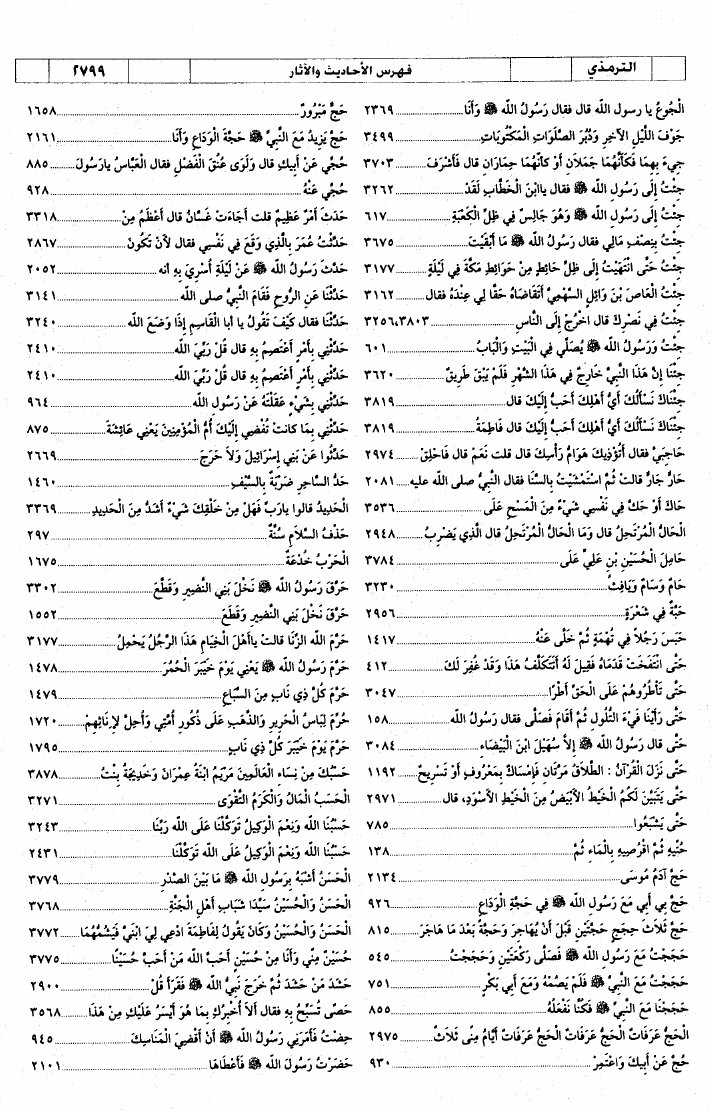 الترمذي
فهرس الأحاديث والآثار
٢٧٩٩
الْجُوعُ يا رسول الله قال فقال رَسُولُ اللَّه ﷺ وَأَنَا ... ٢٣٦٩
جَوْفَ اللَّيْلِ الآخِرِ وَدُبُرَ الصَّلَوَاتِ الْمَكْتُوبَاتِ ... ٣٤٩٩
جِيءَ بِهِمَا فَكَأَنَّهُمَا جَمَلَانِ أَوْ كَأَنَّهُمَا حِمَارَانِ قال فَأَشْرَفَ ... ٣٧٠٣
جِئْتُ إِلَى رَسُولِ اللَّه ﷺ فقال ياابْنَ الْخَطَّابِ لَقَدْ ... ٣٢٦٢
جِئْتُ إِلَى رَسُولِ اللَّه ﷺ وَهُوَ جَالِسٌ فِي ظِلِّ الْكَعْبَةِ ... ٦١٧
جِئْتُ بِنِصْفِ مَالِي فقال رَسُولُ اللَّه ﷺ مَا أَبْقَيْتَ ... ٣٦٧٥
جِئْتُ حَتَّى انْتَهَيْتُ إِلَى ظِلِّ حَائِطٍ مِنْ حَوَائِطِ مَكَّةَ فِي لَيْلَةٍ ... ٣١٧٧
جِئْتُ الْعَاصَ بْنَ وَائِلٍ السَّهْمِيَّ أَتَقَاضَاهُ حَقًّا لِي عِنْدَهُ فقال ... ٣١٦٢
جِئْتُ فِي نَصْرِكَ قال اخْرُجْ إِلَى النَّاسِ ... ٣٢٥٦،٣٨٠٣
جِئْتُ وَرَسُولُ اللَّه ﷺ يُصَلِّي فِي الْبَيْتِ وَالْبَابُ ... ٦٠١
جِئْنَا إِنَّ هَذَا النَّبِيَّ خَارِجٌ فِي هَذَا الشَّهْرِ فَلَمْ يَبْقَ طَرِيقٌ ... ٣٦٢٠
جِئْنَاكَ نَسْأَلُكَ أَيُّ أَهْلِكَ أَحَبُّ إِلَيْكَ قال ... ٣٨١٩
جِئْنَاكَ نَسْأَلُكَ أَيُّ أَهْلِكَ أَحَبُّ إِلَيْكَ قال فَاطِمَةُ ... ٣٨١٩
حَاجِبَيَّ فقال أَتُؤْذِيكَ هَوَامُّ رَأْسِكَ قال قلت نَعَمْ قال فَاحْلِقْ ... ٢٩٧٤
حَارٌّ جَارٌّ قالت ثُمَّ اسْتَمْشَيْتُ بِالسَّنَا فقال النَّبِيُّ صلى الله عليه ... ٢٠٨١
حَاكَ أَوْ حَكَّ فِي نَفْسِي شَيْءٌ مِنَ الْمَسْحِ عَلَى ... ٣٥٣٦
الْحَالُّ الْمُرْتَحِلُ قال وَمَا الْحَالُّ الْمُرْتَحِلُ قال الَّذِي يَضْرِبُ ... ٢٩٤٨
حَامِلَ الْحُسَيْنِ بْنِ عَلِيٍّ عَلَى ... ٣٧٨٤
حَامٌ وَسَامٌ وَيَافِثُ ... ٣٢٣٠
حَبَّةٌ فِي شَعْرَةٍ ... ٢٩٥٦
حَبَسَ رَجُلًا فِي تُهْمَةٍ ثُمَّ خَلَّى عَنْهُ ... ١٤١٧
حَتَّى انْتَفَخَتْ قَدَمَاهُ فَقِيلَ لَهُ أَتَتَكَلَّفُ هَذَا وَقَدْ غُفِرَ لَكَ ... ٤١٢
حَتَّى تَأْطُرُوهُمْ عَلَى الْحَقِّ أَطْرًا ... ٣٠٤٧
حَتَّى رَأَيْنَا فَيْءَ التُّلُولِ ثُمَّ أَقَامَ فَصَلَّى فقال رَسُولُ اللَّه ... ١٥٨
حَتَّى قال رَسُولُ اللَّه ﷺ إِلاَّ سُهَيْلَ ابْنَ الْبَيْضَاءِ ... ٣٠٨٤
حَتَّى نَزَلَ الْقُرْآنُ : الطَّلاَقُ مَرَّتَانِ فَإِمْسَاكٌ بِمَعْرُوفٍ أَوْ تَسْرِيحٌ ... ١١٩٢
حَتَّى يَتَبَيَّنَ لَكُمُ الْخَيْطُ الأَبْيَضُ مِنَ الْخَيْطِ الأَسْوَدِ، قال ... ٢٩٧١
حَتَّى يَشْبَعُوا ... ٧٨٥
حُتِّيهِ ثُمَّ اقْرُصِيهِ بِالْمَاءِ ثُمَّ ... ١٣٨
حَجَّ آدَمُ مُوسَى ... ٢١٣٤
حَجَّ بِي أَبِي مَعَ رَسُولِ اللَّه ﷺ فِي حَجَّةِ الْوَدَاعِ ... ٩٢٦
حَجَّ ثَلاَثَ حِجَجٍ حَجَّتَيْنِ قَبْلَ أَنْ يُهَاجِرَ وَحَجَّةً بَعْدَ مَا هَاجَرَ ... ٨١٥
حَجَجْتُ مَعَ رَسُولِ اللَّه ﷺ فَصَلَّى رَكْعَتَيْنِ وَحَجَجْتُ ... ٥٤٥
حَجَجْتُ مَعَ النَّبِيِّ ﷺ فَلَمْ يَصُمْهُ وَمَعَ أَبِي بَكْرٍ ... ٧٥١
حَجَجْنَا مَعَ النَّبِيِّ ﷺ فَكُنَّا نَفْعَلُهُ ... ٨٥٥
الْحَجُّ عَرَفَاتٌ الْحَجُّ عَرَفَاتٌ الْحَجُّ عَرَفَاتٌ أَيَّامُ مِنًى ثَلاَثٌ ... ٢٩٧٥
حُجَّ عَنْ أَبِيكَ وَاعْتَمِرْ ... ٩٣٠
حَجٌّ مَبْرُورٌ ... ١٦٥٨
حَجَّ يَزِيدُ مَعَ النَّبِيِّ ﷺ حَجَّةَ الْوَدَاعِ وَأَنَا ... ٢١٦١
حُجِّي عَنْ أَبِيكِ قال وَلَوَى عُنُقَ الْفَضْلِ فقال الْعَبَّاسُ يارَسُولَ ... ٨٨٥
حُجِّي عَنْهُ ... ٩٢٨
حَدَثَ أَمْرٌ عَظِيمٌ قلت أَجَاءَتْ غَسَّانُ قال أَعْظَمُ مِنْ ... ٣٣١٨
حَدَّثْتُ عُمَرَ بِالَّذِي وَقَعَ فِي نَفْسِي فقال لأَنْ تَكُونَ ... ٢٨٦٧
حَدَّثَ رَسُولُ اللَّه ﷺ عَنْ لَيْلَةِ أُسْرِيَ بِهِ أنه ... ٢٠٥٢
حَدِّثْنَا عَنِ الرُّوحِ فَقَامَ النَّبِيُّ صلى الله ... ٣١٤١
حَدِّثْنَا فقال كَيْفَ تَقُولُ يا أبا القَاسِمِ إِذَا وَضَعَ اللَّه ... ٣٢٤٠
حَدِّثْنِي بِأَمْرٍ أَعْتَصِمُ بِهِ قال قُلْ رَبِّيَ اللَّه ... ٢٤١٠
حَدِّثْنِي بِأَمْرٍ أَعْتَصِمُ بِهِ قال قُلْ رَبِّيَ اللَّه ... ٢٤١٠
حَدِّثْنِي بِشَيْءٍ عَقَلْتَهُ عَنْ رَسُولِ اللَّه ... ٩٦٤
حَدِّثْنِي بِمَا كانت تُفْضِي إِلَيْكَ أُمُّ الْمُؤْمِنِينَ يَعْنِي عَائِشَةَ ... ٨٧٥
حَدِّثُوا عَنْ بَنِي إِسْرَائِيلَ وَلاَ حَرَجَ ... ٢٦٦٩
حَدُّ السَّاحِرِ ضَرْبَةٌ بِالسَّيْفِ ... ١٤٦٠
الْحَدِيدُ قالوا يارَبِّ فَهَلْ مِنْ خَلْقِكَ شَيْءٌ أَشَدُّ مِنَ الْحَدِيدِ ... ٣٣٦٩
حَذْفُ السَّلاَمِ سُنَّةٌ ... ٢٩٧
الْحَرْبُ خُدْعَةٌ ... ١٦٧٥
حَرَّقَ رَسُولُ اللَّه ﷺ نَخْلَ بَنِي النَّضِيرِ وَقَطَّعَ ... ٣٣٠٢
حَرَّقَ نَخْلَ بَنِي النَّضِيرِ وَقَطَّعَ ... ١٥٥٢
حَرَّمَ اللَّه الزِّنَا قالت ياأَهْلَ الْخِيَامِ هَذَا الرَّجُلُ يَحْمِلُ ... ٣١٧٧
حَرَّمَ رَسُولُ اللَّه ﷺ يَعْنِي يَوْمَ خَيْبَرَ الْحُمُرَ ... ١٤٧٨
حَرَّمَ كُلَّ ذِي نَابٍ مِنَ السِّبَاعِ ... ١٤٧٩
حُرِّمَ لِبَاسُ الْحَرِيرِ وَالذَّهَبِ عَلَى ذُكُورِ أُمَّتِي وَأُحِلَّ لِإِنَاثِهِمْ ... ١٧٢٠
حَرَّمَ يَوْمَ خَيْبَرَ كُلَّ ذِي نَابٍ ... ١٧٩٥
حَسْبُكَ مِنْ نِسَاءِ الْعَالَمِينَ مَرْيَمُ ابْنَةُ عِمْرَانَ وَخَدِيجَةُ بِنْتُ ... ٣٨٧٨
الْحَسَبُ الْمَالُ وَالْكَرَمُ التَّقْوَى ... ٣٢٧١
حَسْبُنَا اللَّه وَنِعْمَ الْوَكِيلُ تَوَكَّلْنَا عَلَى اللَّه رَبِّنَا ... ٣٢٤٣
حَسْبُنَا اللَّه وَنِعْمَ الْوَكِيلُ عَلَى اللَّه تَوَكَّلْنَا ... ٢٤٣١
الْحَسَنُ أَشْبَهُ بِرَسُولِ اللَّه ﷺ مَا بَيْنَ الصَّدْرِ ... ٣٧٧٩
الْحَسَنُ وَالْحُسَيْنُ سَيِّدَا شَبَابِ أَهْلِ الْجَنَّةِ ... ٣٧٦٨
الْحَسَنُ وَالْحُسَيْنُ وَكَانَ يَقُولُ لِفَاطِمَةَ ادْعِي لِيَ ابْنَيَّ فَيَشُمُّهُمَا ... ٣٧٧٢
حُسَيْنٌ مِنِّي وَأَنَا مِنْ حُسَيْنٍ أَحَبَّ اللَّه مَنْ أَحَبَّ حُسَيْنًا ... ٣٧٧٥
حَشَدَ مَنْ حَشَدَ ثُمَّ خَرَجَ نَبِيُّ اللَّه ﷺ فَقَرَأَ قُلْ ... ٢٩٠٠
حَصًى تُسَبِّحُ بِهِ فقال أَلاَ أُخْبِرُكِ بِمَا هُوَ أَيْسَرُ عَلَيْكِ مِنْ هَذَا ... ٣٥٦٨
حِضْتُ فَأَمَرَنِي رَسُولُ اللَّه ﷺ أَنْ أَقْضِيَ الْمَنَاسِكَ ... ٩٤٥
حَضَرْتُ رَسُولَ اللَّه ﷺ فَأَعْطَاهَا ... ٢١٠١